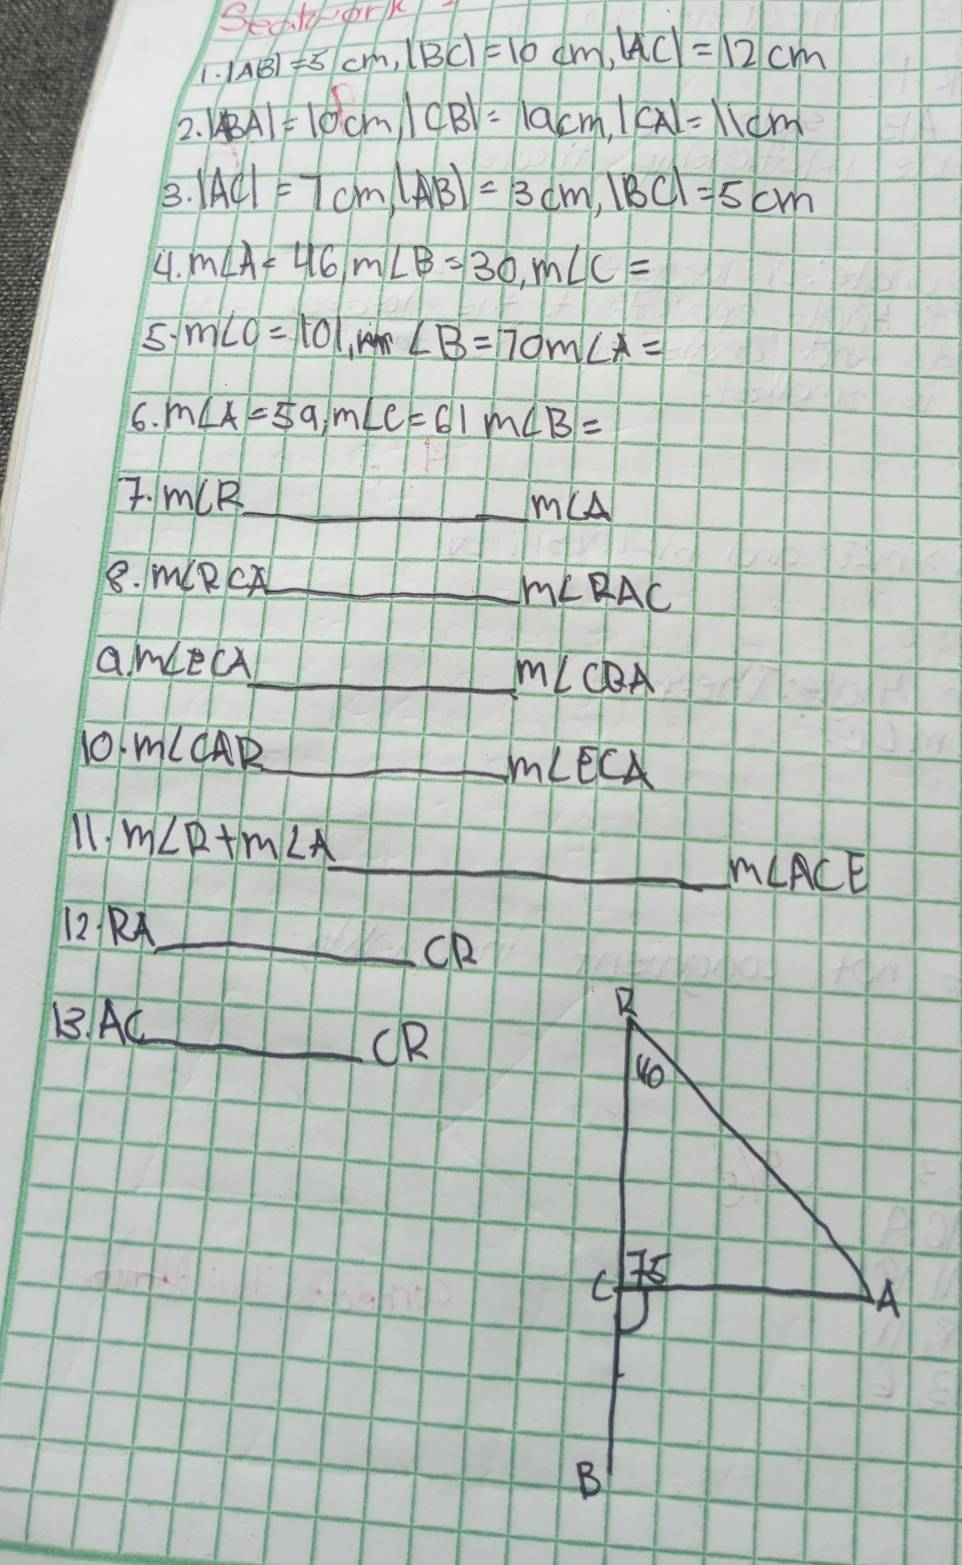 Seatwork
1. |AB| = 5 cm, |BC| = 10 cm, |AC| = 12 cm
2. |BA| = 10 cm, |CB| = 19cm, |CA| = 11cm
3. |AC| = 7cm, |AB| = 3cm, |BC| = 5cm
4. m∠A = 46, m∠B = 30, m∠C =
5. m∠C = 101, m∠B = 70 m∠A =
6. m∠A = 59, m∠C = 61 m∠B =
7. m∠R ________ m∠A
8. m∠RCA ________ m∠RAC
9. m∠ECA ________ m∠CRA
10. m∠CAR ________ m∠ECA
11. m∠R + m∠A ________ m∠ACE
12. RA ________ CR
13. AC ________ CR
R
40
C 75 A
B